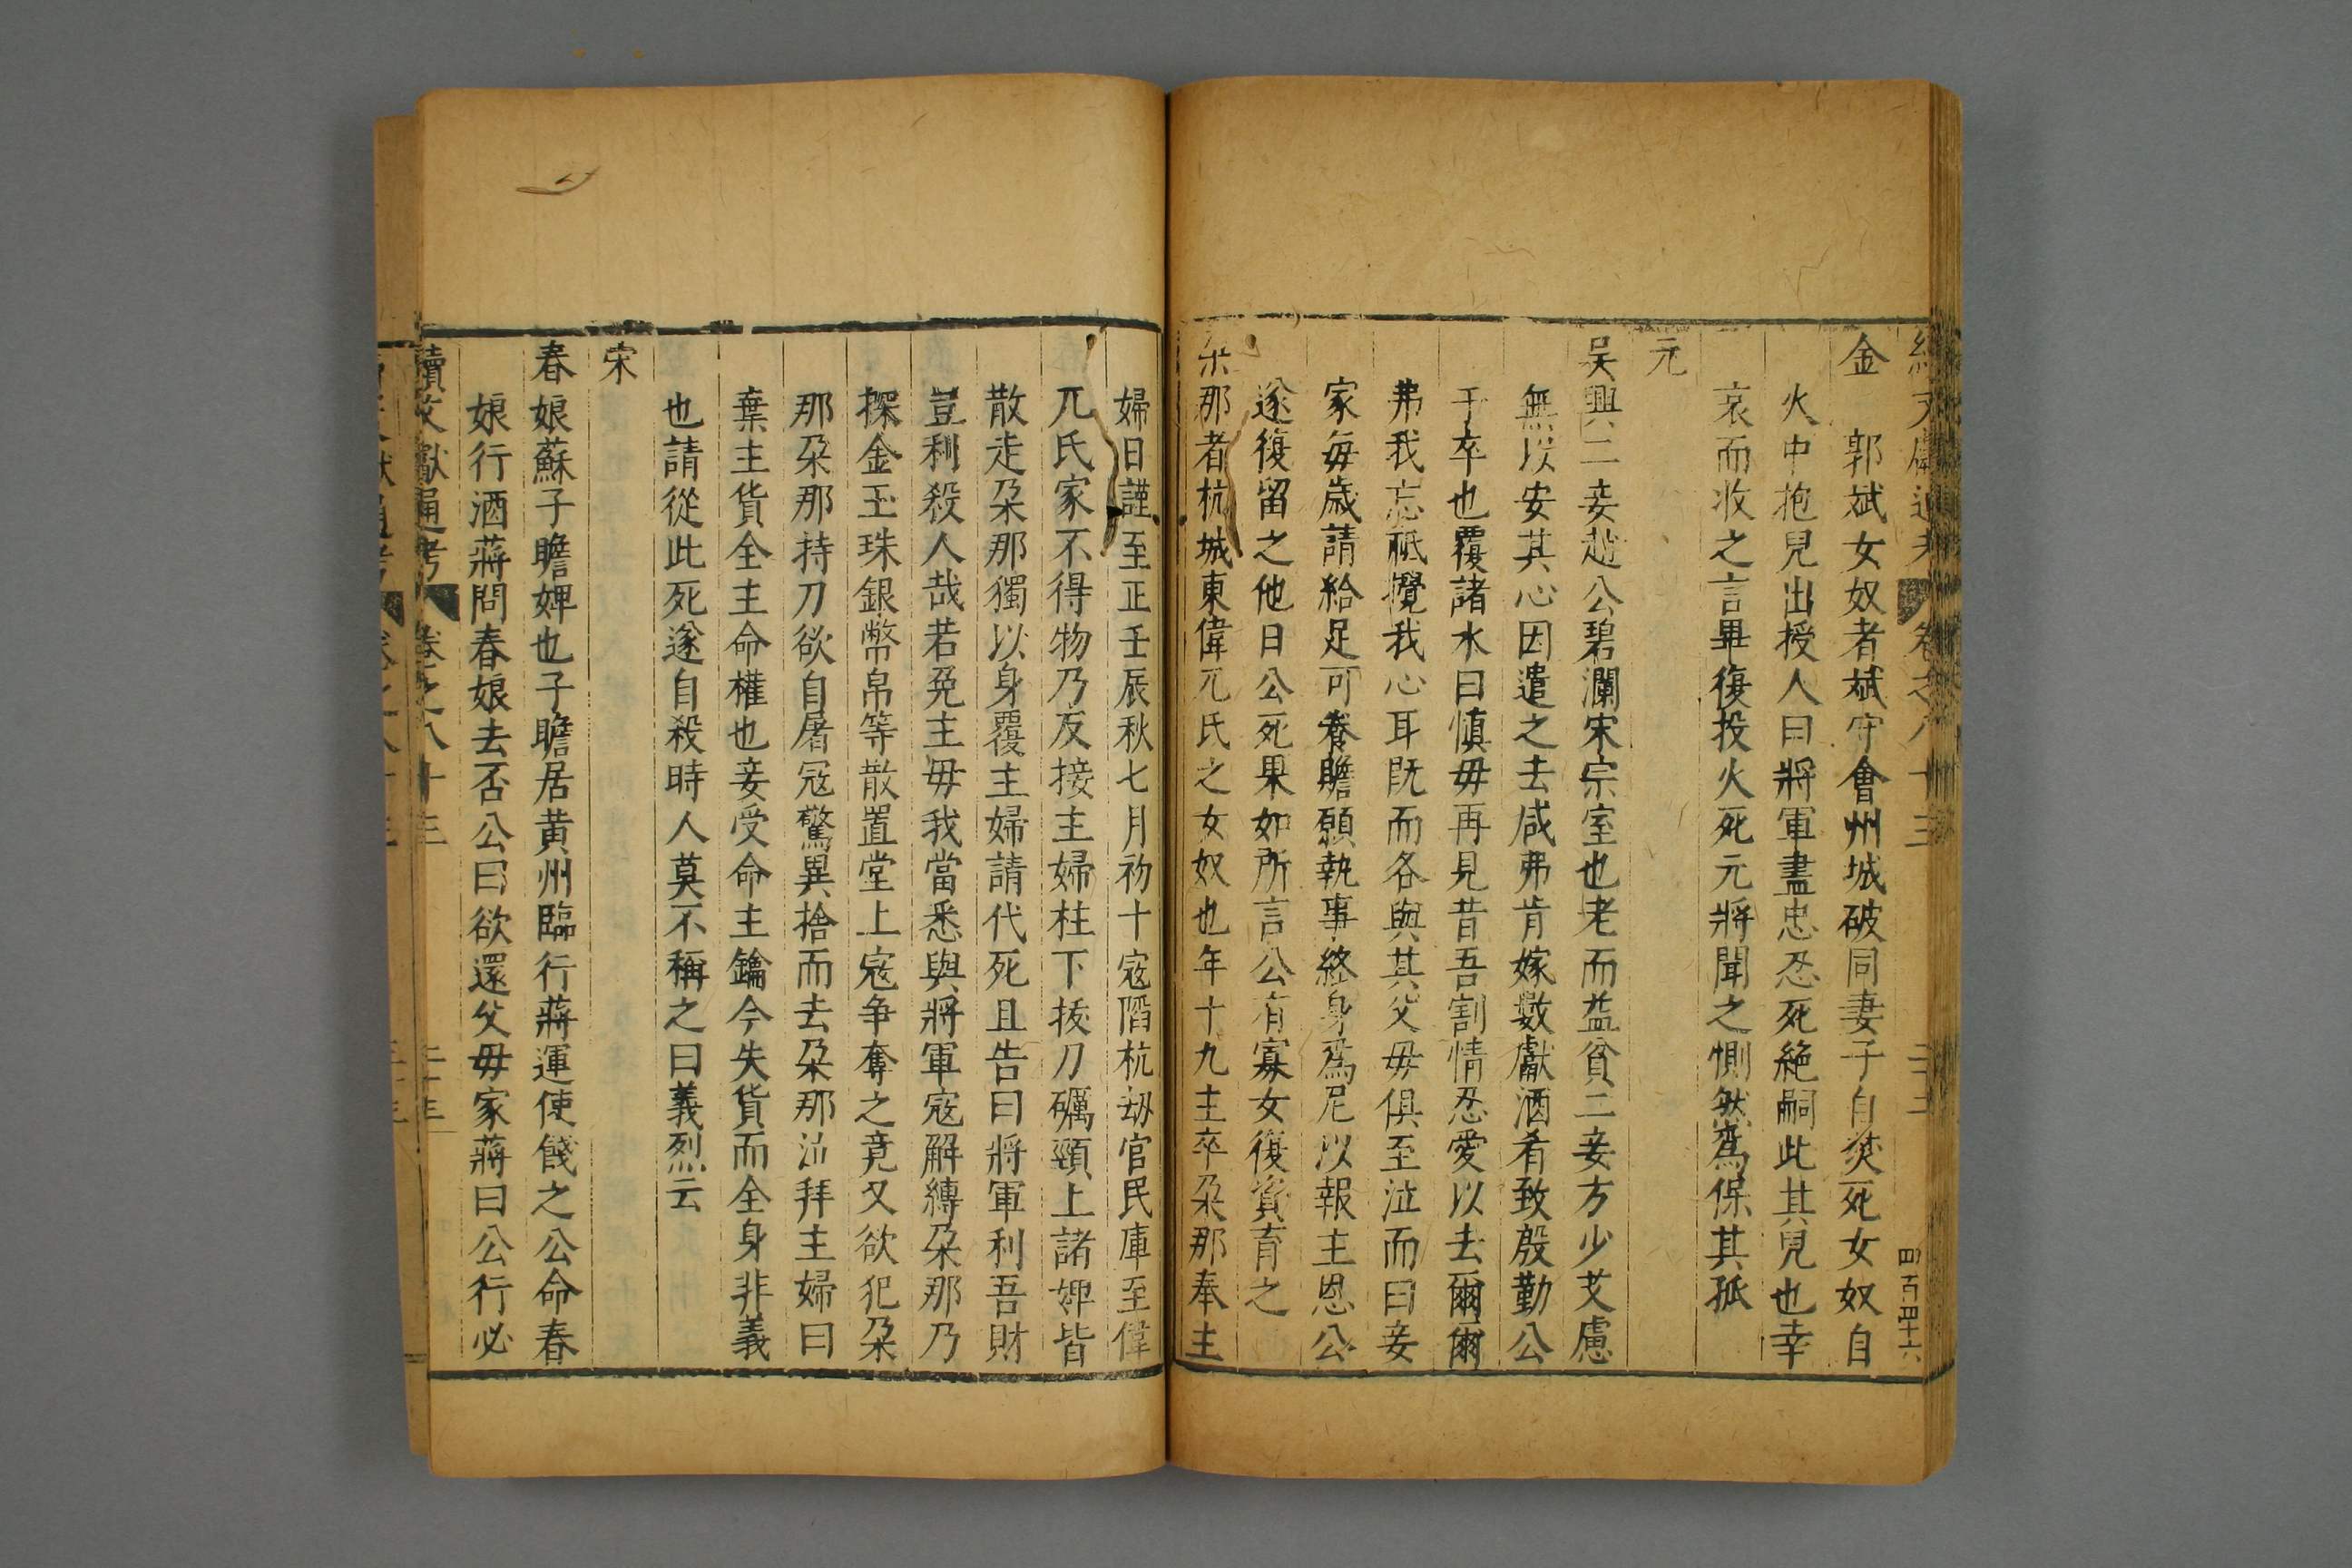 續文獻通考 卷之八十三 二十二 四百四十六
金
郭斌女奴者斌守會州城破同妻子自焚死女奴自
火中抱兒出授人曰將軍盡忠忍死絕嗣此其兒也幸
哀而收之言畢復投火死元將聞之惻然爲保其孤
元
吳興二妾趙公碧瀾宋宗室也老而益貧二妾方少艾慮
無以安其心因遣之去咸弗肯嫁數獻酒肴致殷勤公
于卒也覆諸水曰慎毋再見昔吾割情忍愛以去爾爾
弗我忘祗攪我心耳既而各與其父毋俱至泣而曰妾
家每歲請給足可養贍願執事終身爲尼以報主恩公
遂復留之他日公死果如所言公有寡女復資育之
朵那者杭城東偉兀氏之女奴也年十九主卒朵那奉主
婦日謹至正壬辰秋七月初十寇陷杭刼官民庫至偉
兀氏家不得物乃反接主婦柱下拔刀礪頸上諸婢皆
散走朵那獨以身覆主婦請代死且告曰將軍利吾財
豈利殺人哉若免主毋我當悉與將軍寇解縛朵那乃
探金玉珠銀幣帛等散置堂上寇争奪之竟又欲犯朵
那朵那持刀欲自屠寇驚異捨而去朵那泣拜主婦曰
棄主貨全主命權也妾受命主鑰今失貨而全身非義
也請從此死遂自殺時人莫不稱之曰義烈云
宋
春娘蘇子瞻婢也子瞻居黄州臨行蔣運使餞之公命春
娘行酒蔣問春娘去否公曰欲還父毋家蔣曰公行必
續文獻通考 卷之八十三 二十三